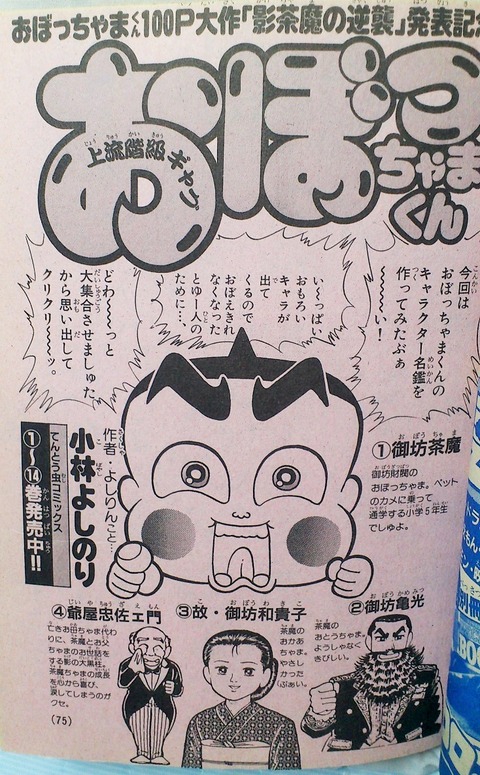 おぼっちゃまくん100P大作「影茶魔の逆襲」発表記念
おぼっちゃまくん
上流階級ギャグ
今回は
おぼっちゃまくんの
キャラクター名鑑を
作ってみたぶぁ
〜〜〜い!
い〜っぱい
おもろい
キャラが
出て
くるので
おぼえきれ
なくなった
とゆー人の
ために…
どわ〜〜っと
大集合させましゅた
から思い出して
クリクリ〜〜ッ。
作者/よしりんこと…
小林よしのり
てんとう虫コミックス
①〜⑭巻発売中!!
①御坊茶魔
御坊財閥の
おぼっちゃま。ペット
のカメに乗って
通学する小学5年生
でしゅよ。
②御坊亀光
茶魔の
おとうちゃま。
ようしゃなく
きびしい。
③故・御坊和貴子
茶魔の
おかあ
ちゃま。
やさし
かった
ぶぁい。
④爺屋忠佐ェ門
亡きお田ちゃま代わ
りに、茶魔とお父
ちゃまのお世話を
する影の大黒柱。
茶魔ちゃまの成長
を心から喜び、
涙してしまうのが
クセ。
(75)